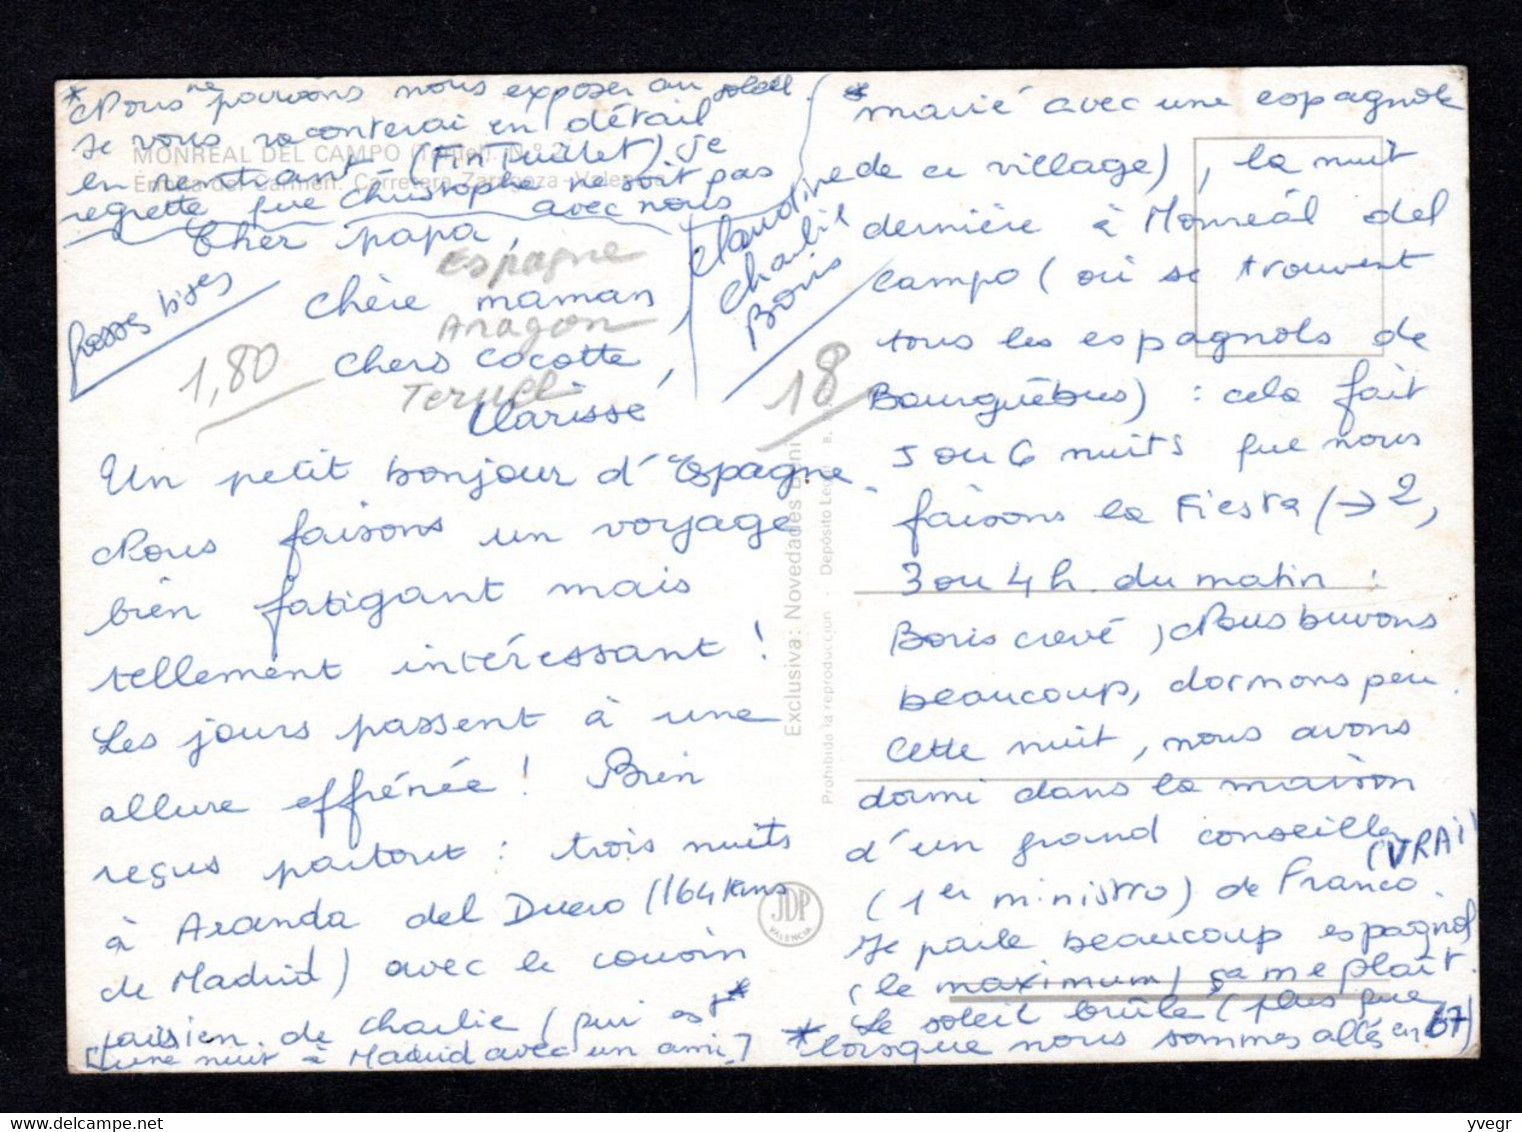 Cher papa,
Chère maman
Chers Cocotte,
Clarisse
Un petit bonjour d'Espagne
Nous faisons un voyage
bien fatigant mais
tellement intéressant !
Les jours passent à une
allure effrénée ! Bien
reçus partout : trois nuits
à Aranda del Duero (164 kms
de Madrid) avec le cousin
parisien de Charlie (qui est *
[une nuit à Madrid avec un ami]
* marié avec une espagnole
de ce village), la nuit
dernière à Monréal del
Campo (où se trouvent
tous les espagnols de
Bourguébus) : cela fait
5 ou 6 nuits que nous
faisons la Fiesta (→ 2,
3 ou 4 h. du matin :
Boris crevé, Nous buvons
beaucoup, dormons peu.
Cette nuit, nous avons
dormi dans la maison
d'un grand conseiller
(VRAI)
(1er ministro) de Franco.
Je parle beaucoup espagnol
(le maximum) ça me plaît.
Le soleil brûle (plus que
* lorsque nous sommes allés en 67)
* Nous ne pouvons nous exposer au soleil.
Je vous raconterai en détail
en rentrant (En Juillet) Je
regrette que Christophe ne soit pas
avec nous
Grosses bises
Claudine
Charlie
Boris
Espagne
Aragon
Teruel
1,80
18
MONREAL DEL CAMPO (Teruel). N.º 2
Ermita del Carmen. Carretera Zaragoza - Valencia
Exclusiva: Novedades
Prohibida la reproducción - Depósito Legal
JDP
VALENCIA
yvegr